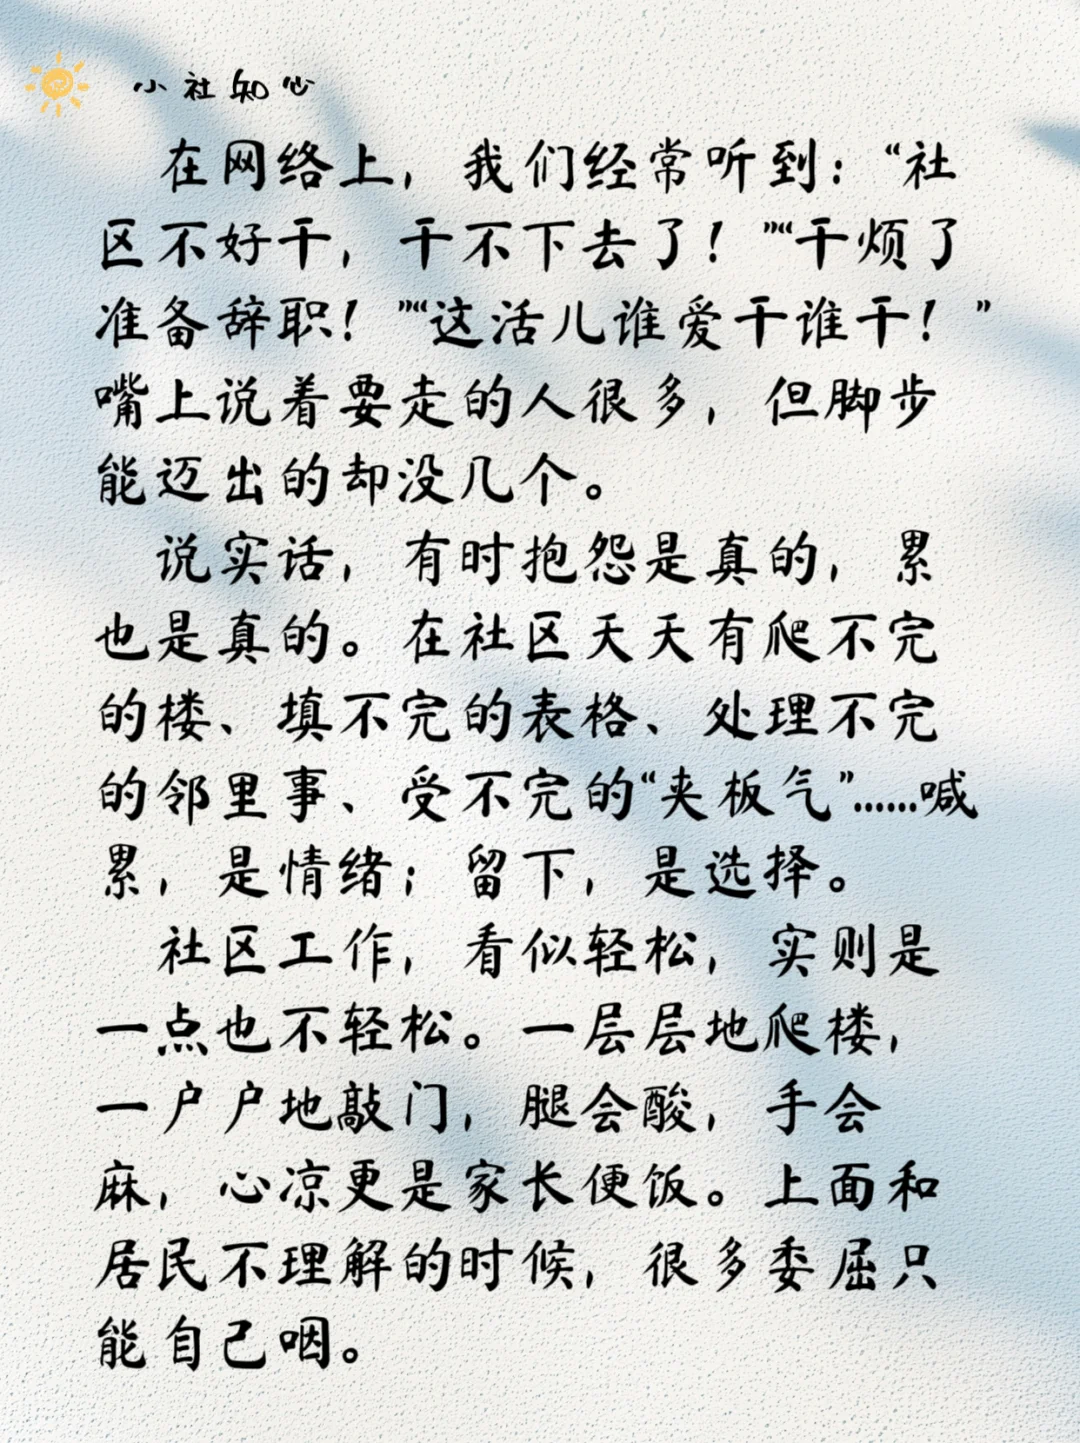 小社知心
在网络上，我们经常听到：“社
区不好干，干不下去了！”“干烦了
准备辞职！”“这活儿谁爱干谁干！”
嘴上说着要走的人很多，但脚步
能迈出的却没几个。
说实话，有时抱怨是真的，累
也是真的。在社区天天有爬不完
的楼、填不完的表格、处理不完
的邻里事、受不完的“夹板气”……喊
累，是情绪；留下，是选择。
社区工作，看似轻松，实则是
一点也不轻松。一层层地爬楼，
一户户地敲门，腿会酸，手会
麻，心凉更是家长便饭。上面和
居民不理解的时候，很多委屈只
能自己咽。